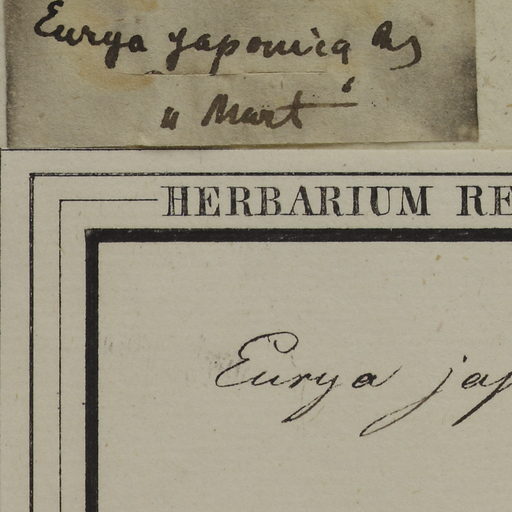 Eurya japonica
" Mart
HERBARIUM RE
Eurya jap